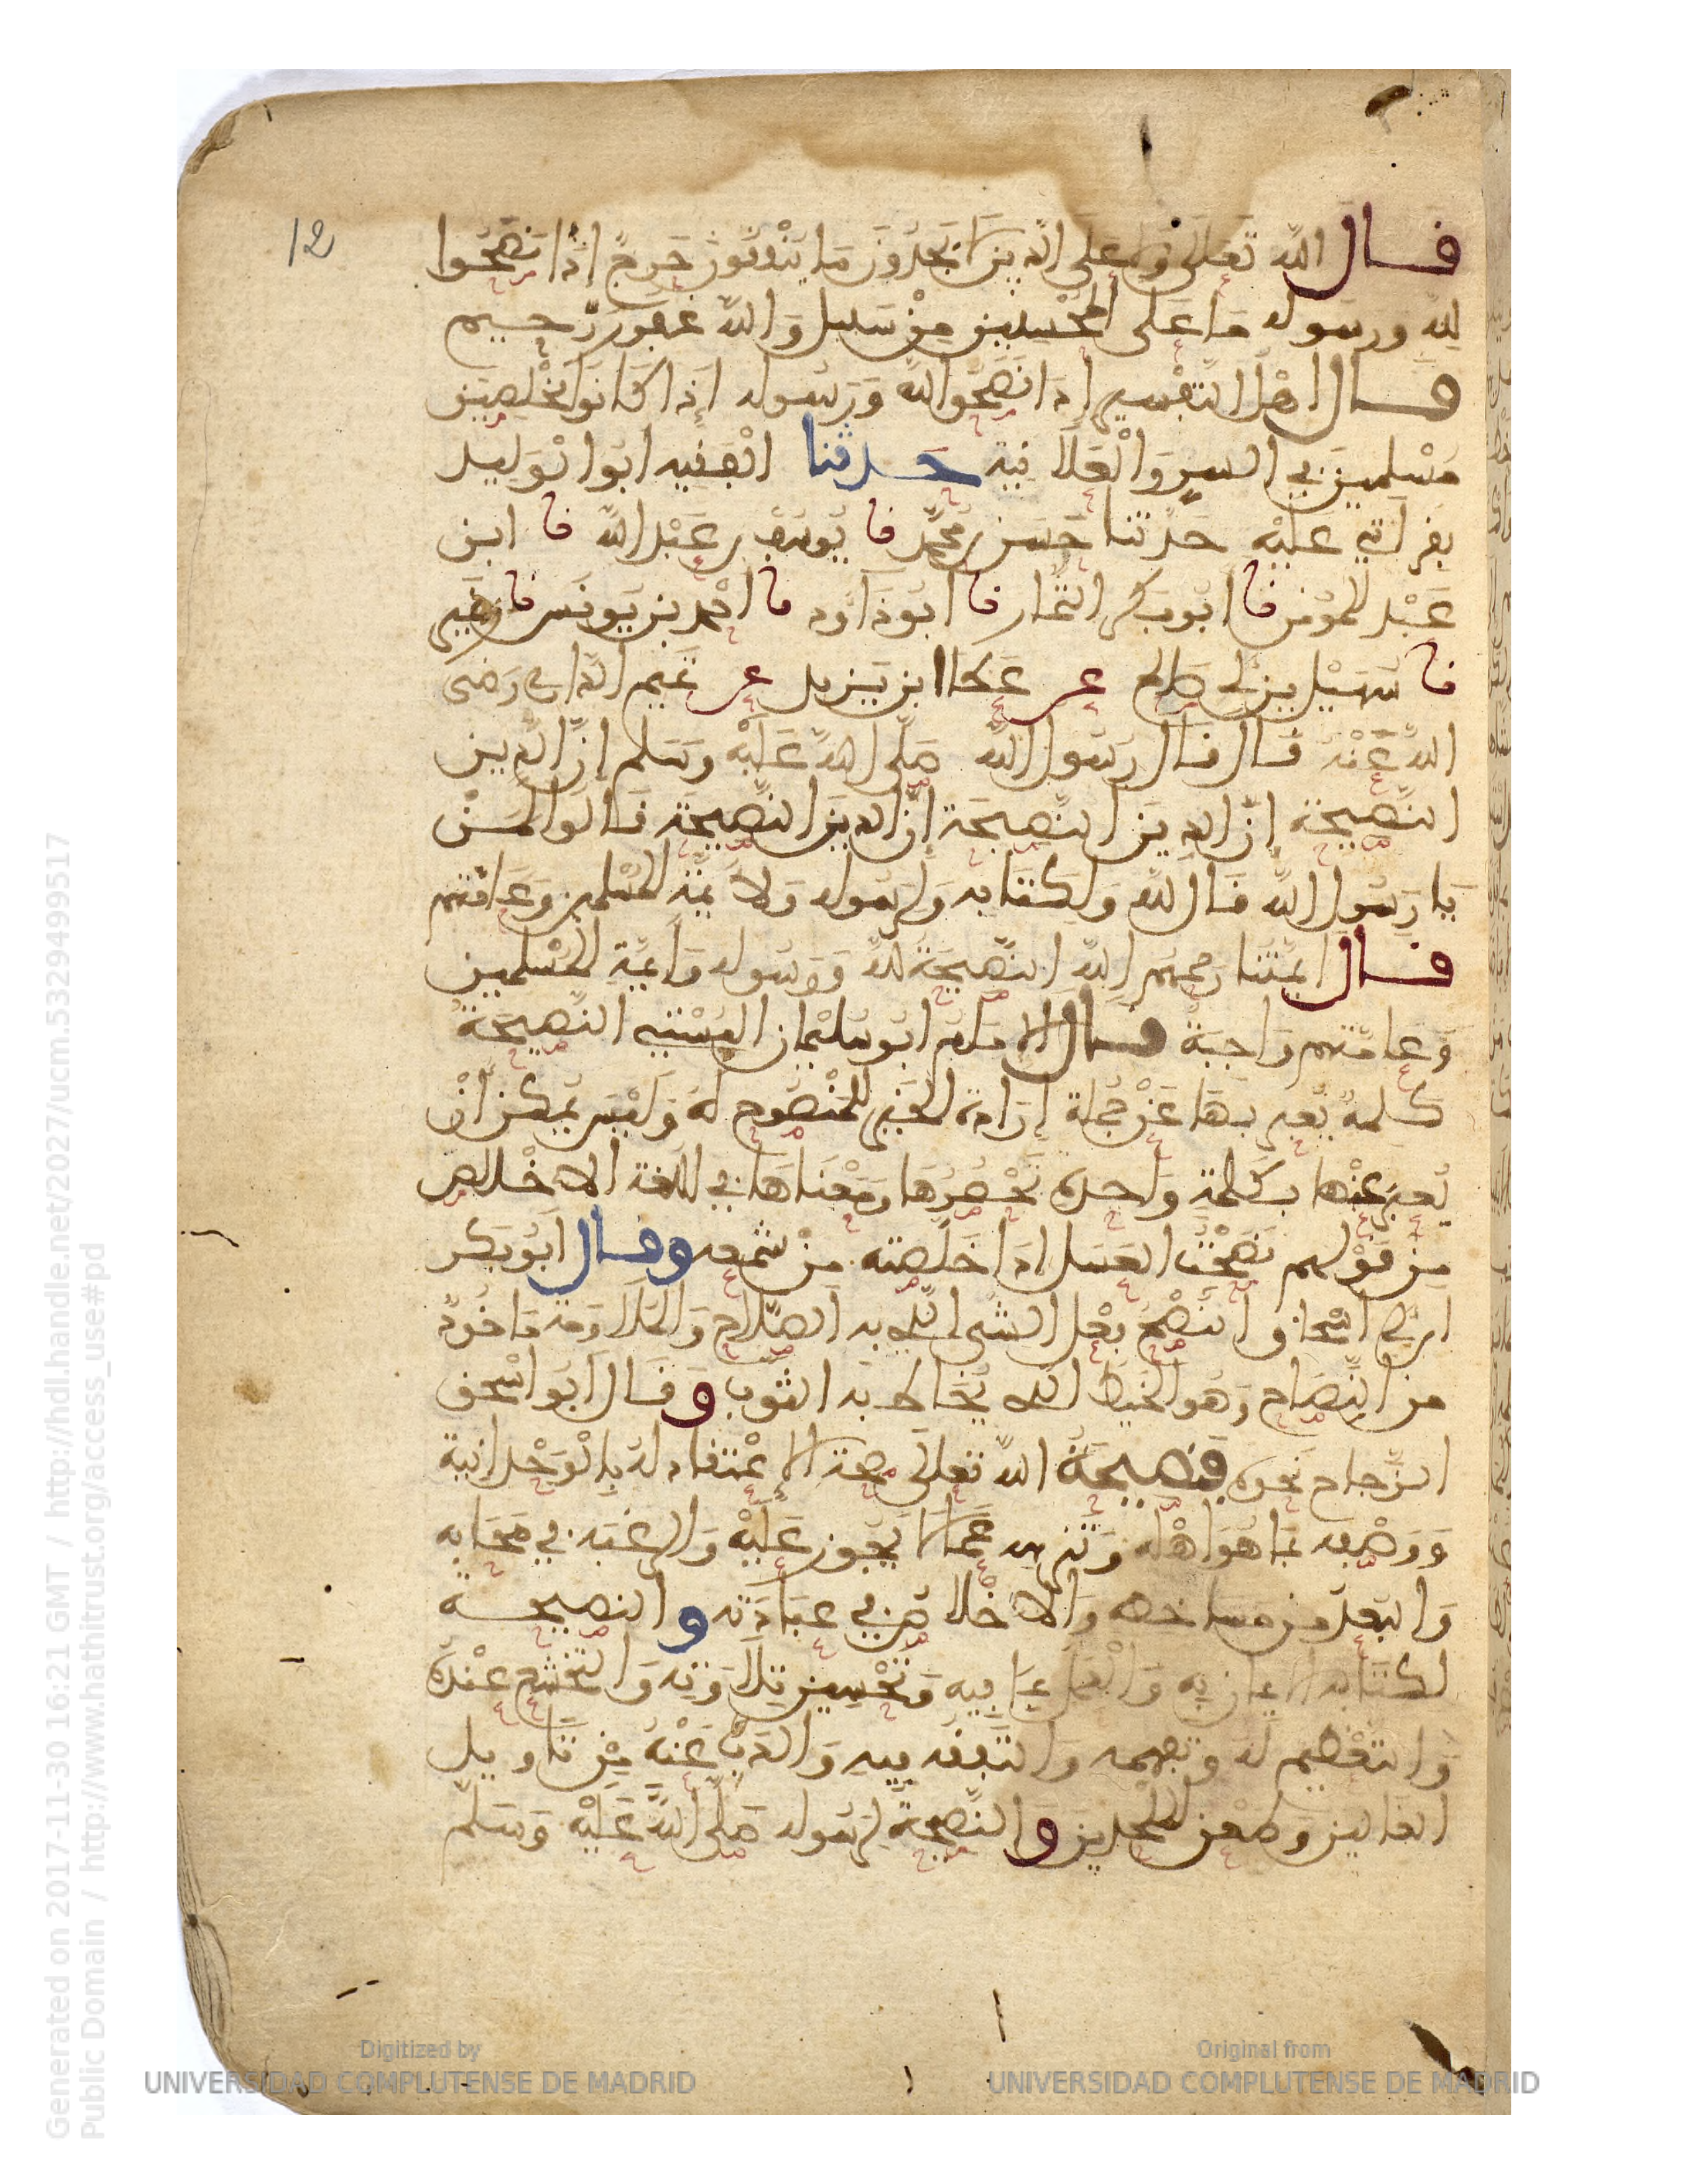 12
قال الله تعالى ولا على الذين لا يجدون ما ينفقون حرج إذا نصحوا
لله ورسوله ما على المحسنين من سبيل والله غفور رحيم
قال اهل التفسير إذا نصحوا لله ورسوله إذا كانوا مخلصين
مسلمين في السر والعلانية حدثنا الفقيه ابو الوليد
بقراءتي عليه حدثنا حسين بن محمد نا يوسف بن عبد الله نا ابن
عبد المومن نا ابو بكر التمار نا ابو داود نا احمد بن يونس نا زهير
نا سهيل بن ابي صالح عن عطاء ابن يزيد عن تميم الداري رضى
الله عنه قال قال رسول الله صلى الله عليه وسلم إن الدين
النصيحة إن الدين النصيحة إن الدين النصيحة قالوا لمن
يا رسول الله قال لله ولكتابه ولرسوله ولائمة المسلمين وعامتهم
قال ائمتنا رحمهم الله النصيحة لله ورسوله وائمة المسلمين
وعامتهم واجبة قال الامام ابو سليمان البستي النصيحة
كلمة يعبر بها عن جملة إرادة الخير للمنصوح له وليس يمكن أن
يعبر عنها بكلمة واحدة تحصرها ومعناها في اللغة الاخلاص
من قولهم نصحت العسل اذا خلصته من شمعه وقال ابو بكر
ابن ابي اسحاق النصح فعل الشىء الذي به الصلاح والملاءمة ماخوذ
من النصاح وهو الخيط الذي يخاط به الثوب وقال ابو اسحق
الزجاج نحوه فنصيحة الله تعالى صحة الاعتقاد له بالوحدانية
ووصفه بما هو اهله وتنزيهه عما لا يجوز عليه والرغبة في محابه
والبعد من مساخطه والاخلاص في عبادته والنصيحة
لكتابه الايمان به والعمل بما فيه وتحسين تلاوته والتخشع عنده
والتعظيم له وتفهمه والتفقه فيه والذب عنه من تاويل
الغالين وطعن الملحدين والنصيحة لرسوله صلى الله عليه وسلم
Generated on 2017-11-30 16:21 GMT / http://hdl.handle.net/2027/ucm.5329499517
Public Domain / http://www.hathitrust.org/access_use#pd
Digitized by
UNIVERSIDAD COMPLUTENSE DE MADRID
Original from
UNIVERSIDAD COMPLUTENSE DE MADRID